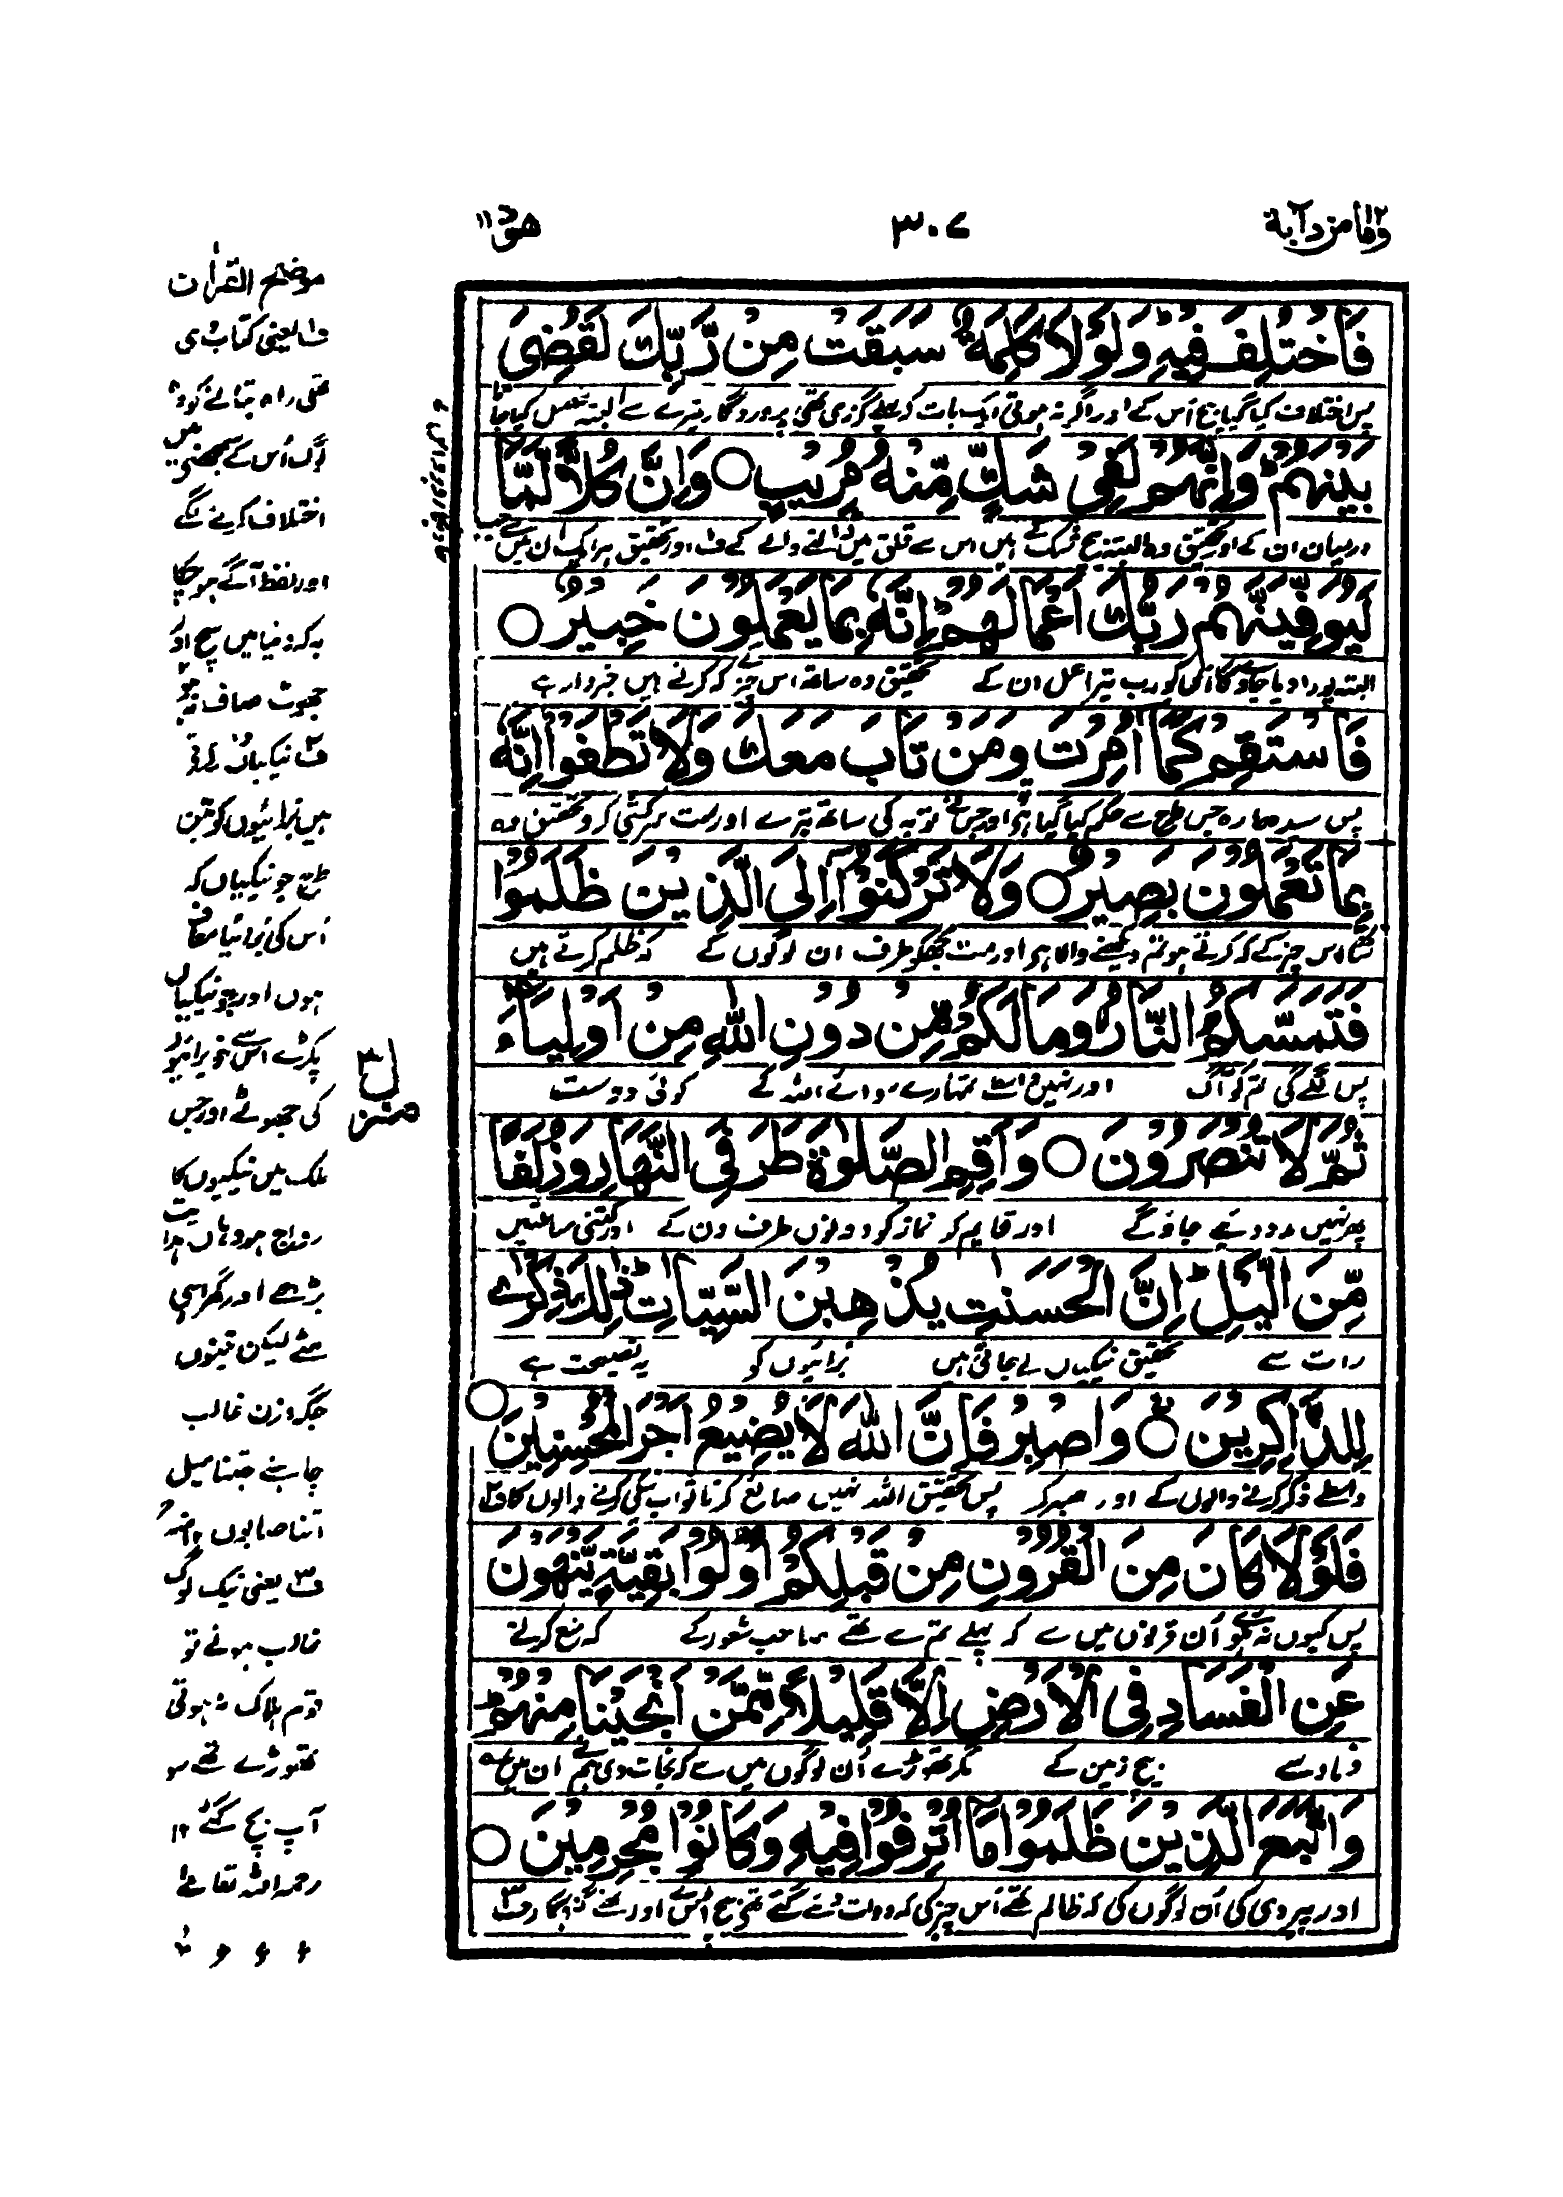 ومامن دآبة ١٢
٣٠٧
هود ١١
فَاخْتُلِفَ فِيْهِ ؕ وَلَوْلَا كَلِمَةٌ سَبَقَتْ مِنْ رَّبِّكَ لَقُضِیَ
پس اختلاف کیا گیا بیچ اس کے اور اگر نہ ہوتی ایک بات کہ پہلے گزری تھی پروردگار تیرے سے البتہ فیصل کیا جاتا
بَيْنَهُمْ ؕ وَاِنَّهُمْ لَفِیْ شَكٍّ مِّنْهُ مُرِيْبٍ ○ وَاِنَّ كُلًّا لَّمَّا
درمیان ان کے اور تحقیق وہ البتہ بیچ شک کے ہیں اس سے قلق میں ڈالنے والے کے ف۱ اور تحقیق ہر ایک ان میں
لَيُوَفِّيَنَّهُمْ رَبُّكَ اَعْمَالَهُمْ ؕ اِنَّهٗ بِمَا يَعْمَلُوْنَ خَبِيْرٌ ○
البتہ پورا دیا جاویگا انکو رب تیرا عمل ان کے تحقیق وہ ساتھ اس چیز کہ کرتے ہیں خبردار ہے
فَاسْتَقِمْ كَمَآ اُمِرْتَ وَمَنْ تَابَ مَعَكَ وَلَا تَطْغَوْا ؕ اِنَّهٗ
پس سیدھا رہ جس طرح سے حکم کیا گیا ہے تو اور جس نے توبہ کی ساتھ تیرے اور مت سرکشی کرو تحقیق وہ
بِمَا تَعْمَلُوْنَ بَصِيْرٌ ○ وَلَا تَرْكَنُوْٓا اِلَی الَّذِيْنَ ظَلَمُوْا
ساتھ اس چیز کے کہ کرتے ہو تم دیکھنے والا ہے اور مت جھکو طرف ان لوگوں کے کہ ظلم کرتے ہیں
فَتَمَسَّكُمُ النَّارُ وَمَا لَكُمْ مِّنْ دُوْنِ اللّٰهِ مِنْ اَوْلِيَآءَ
پس لگے گی تم کو آگ اور نہیں واسطے تمہارے سوائے اللہ کے کوئی دوست
ثُمَّ لَا تُنْصَرُوْنَ ○ وَاَقِمِ الصَّلٰوةَ طَرَفَیِ النَّهَارِ وَزُلَفًا
پھر نہیں مدد دیئے جاؤگے اور قایم کر نماز کو دونوں طرف دن کے اور کتنی ساعتیں
مِّنَ الَّيْلِ ؕ اِنَّ الْحَسَنٰتِ يُذْهِبْنَ السَّيِّاٰتِ ؕ ذٰلِكَ ذِكْرٰی
رات سے تحقیق نیکیاں لے جاتی ہیں بُرائیوں کو یہ نصیحت ہے
لِلذّٰكِرِيْنَ ○ وَاصْبِرْ فَاِنَّ اللّٰهَ لَا يُضِيْعُ اَجْرَ الْمُحْسِنِيْنَ ○
واسطے ذکر کرنے والوں کے اور صبر کر پس تحقیق اللہ نہیں ضایع کرتا ثواب نیکی کرنے والوں کا ف۲
فَلَوْلَا كَانَ مِنَ الْقُرُوْنِ مِنْ قَبْلِكُمْ اُولُوْا بَقِيَّةٍ يَّنْهَوْنَ
پس کیوں نہ ہوئے اُن قرنوں میں سے کہ پہلے تم سے تھے صاحب شعور کے کہ منع کرتے
عَنِ الْفَسَادِ فِی الْاَرْضِ اِلَّا قَلِيْلًا مِّمَّنْ اَنْجَيْنَا مِنْهُمْ ؕ
فساد سے بیچ زمین کے مگر تھوڑے اُن لوگوں میں سے کہ نجات دی ہم نے ان میں سے
وَاتَّبَعَ الَّذِيْنَ ظَلَمُوْا مَآ اُتْرِفُوْا فِيْهِ وَكَانُوْا مُجْرِمِيْنَ ○
اور پیروی کی اُن لوگوں کی کہ ظالم تھے اُس چیز کی کہ دولت دئے گئے تھے بیچ اُس کے اور تھے گنہگار ف۳
منزل ٣
موضح القرآن
ف۱ یعنی کتاب دی
تھی راہ بتانے کو وہ
لوگ اُس کے سمجھنے میں
اختلاف کرنے لگے
اور لفظ آگے ہو چکا
یہ کہ دنیا میں سچ اور
جھوٹ صاف نہ ہو
ف۲ نیکیاں دور کرتی
ہیں برائیوں کو تین
طرح جو نیکیاں کرے
اُس کی برائیاں معاف
ہوں اور جو نیکیاں
پکڑے اس سے خو برائی
کی چھوٹے اور جس
ملک میں نیکیوں کا
رواج ہو وہاں ہدایت
بڑھے اور گمراہی
مٹے لیکن تینوں
جگہ وزن غالب
چاہئے جتنا میل
اتنا صابون ۱۲ منہ
ف۳ یعنی نیک لوگ
غالب ہوتے تو
قوم ہلاک نہ ہوتی
تھوڑے تھے سو
آپ بچ گئے ۱۲
رحمہ اللہ تعالےٰ